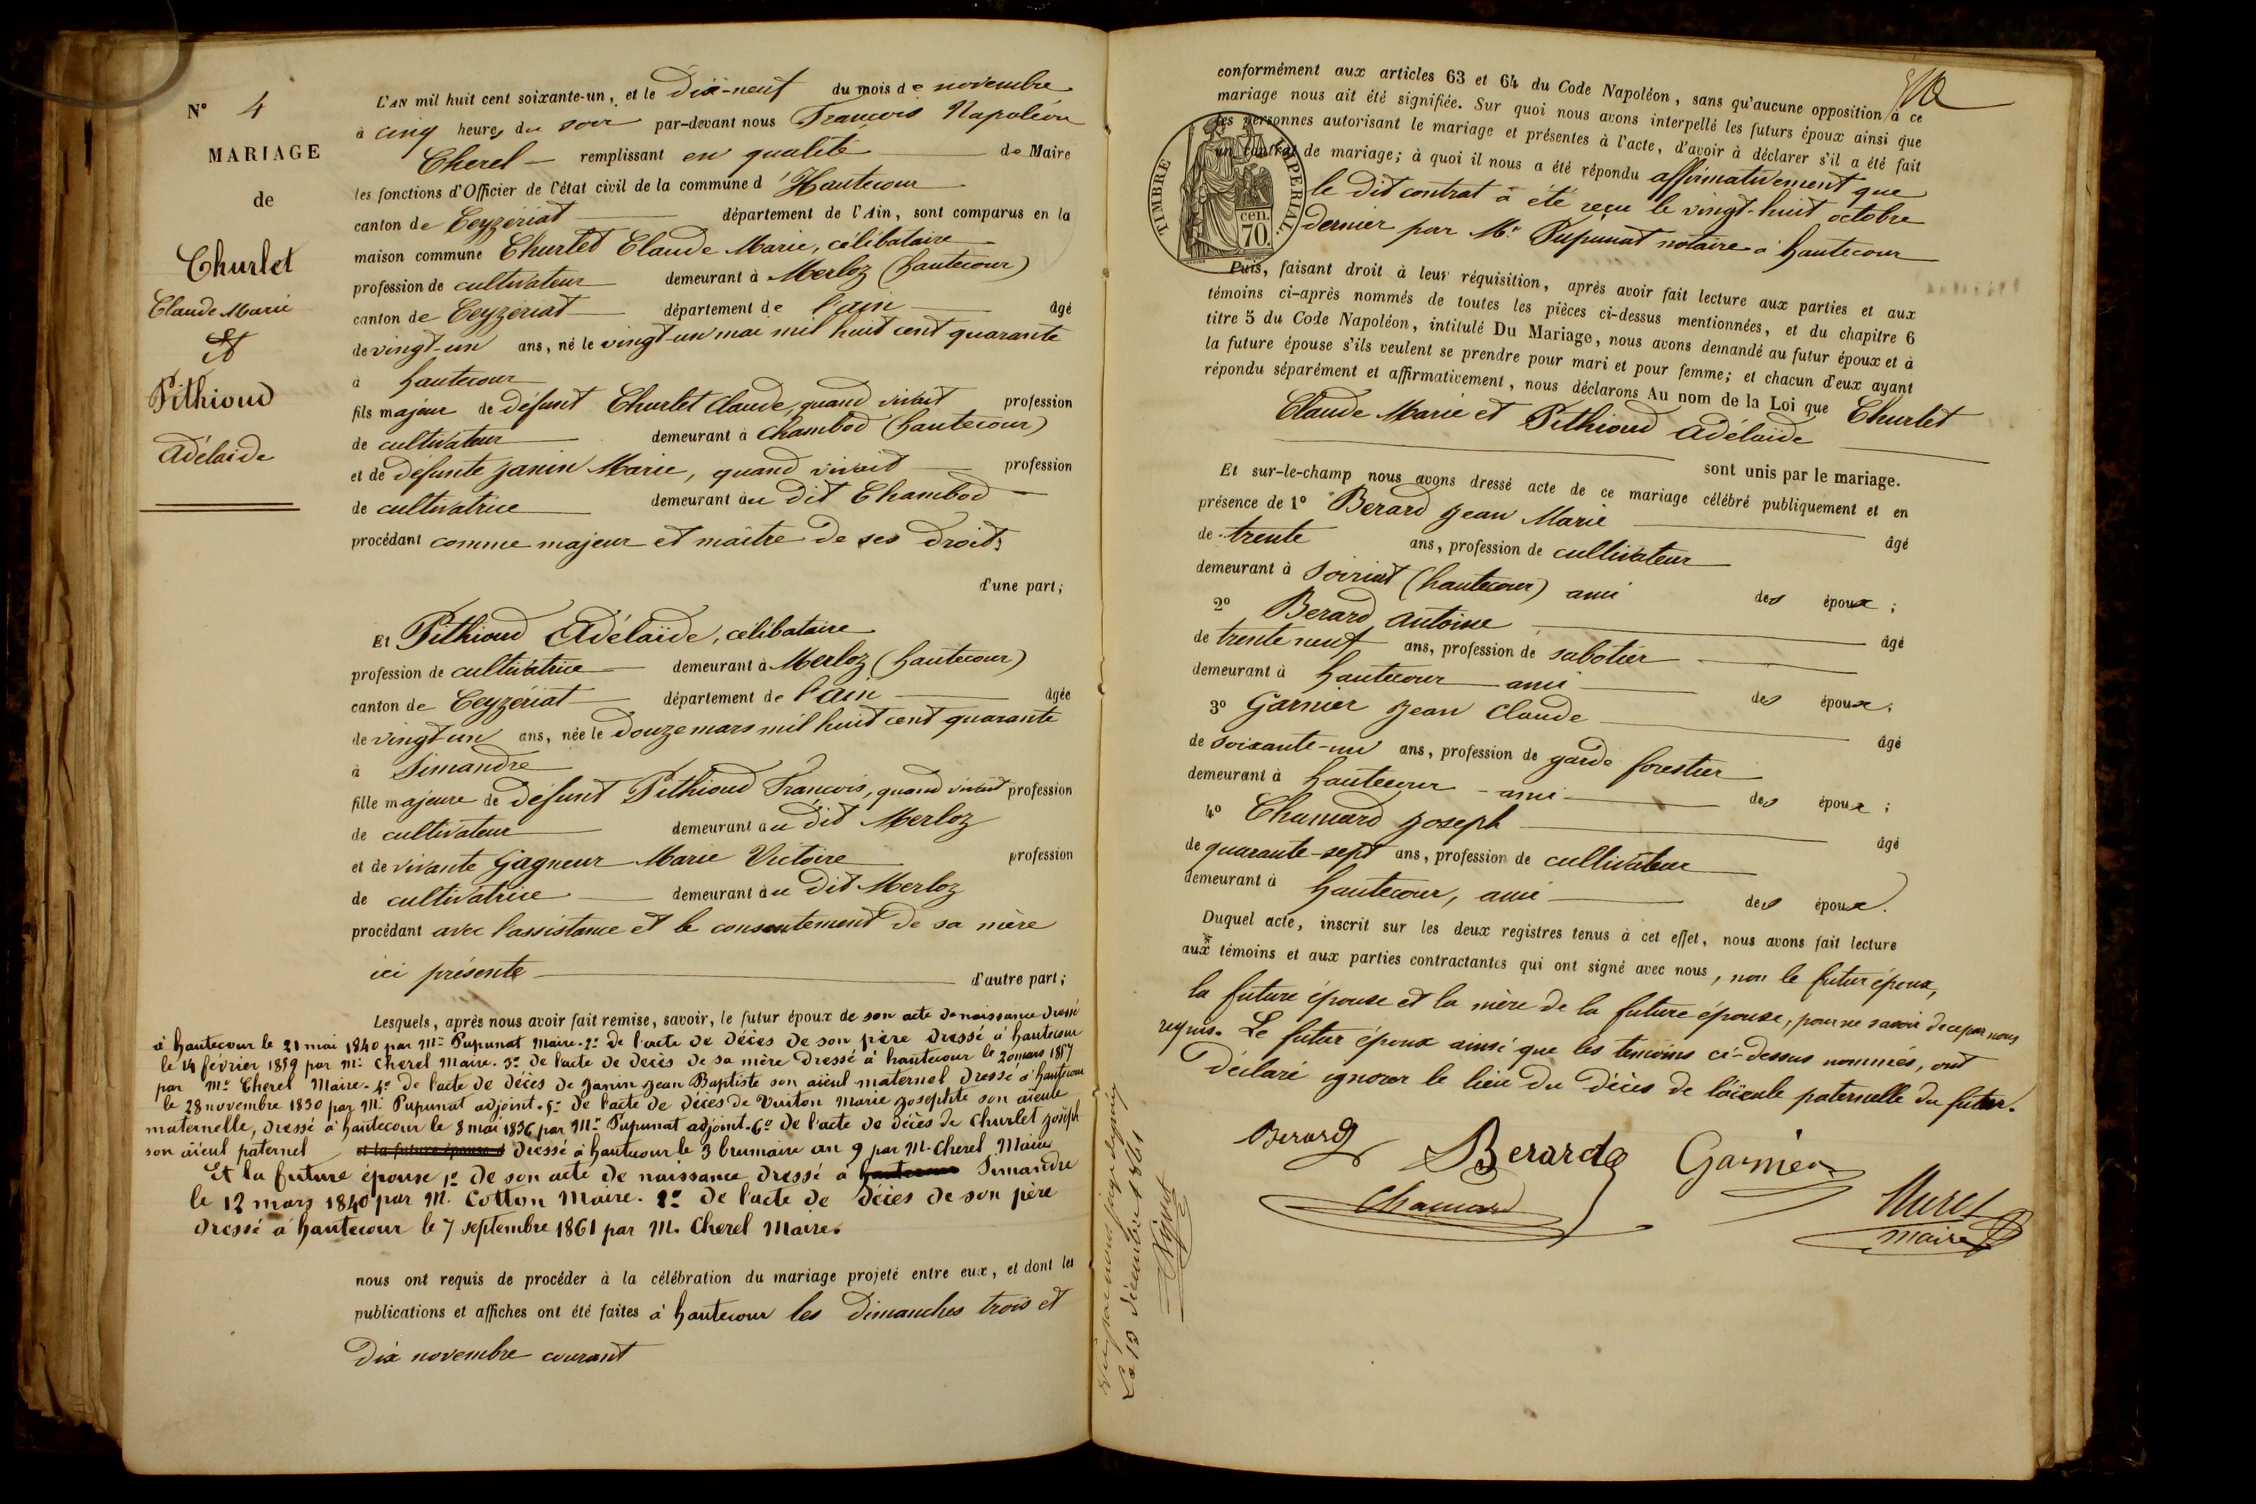 N° 4
MARIAGE
de
Churlet
Claude Marie
Et
Pithioud
Adélaïde
L'AN mil huit cent soixante-un, et le Dix-neuf du mois de novembre
à cinq heures du soir par-devant nous François Napoléon
Cherel remplissant en qualité de Maire
les fonctions d'Officier de l'état civil de la commune d'Hautecour
canton de Ceyzériat département de l'Ain, sont comparus en la
maison commune Churlet Claude Marie, célibataire
profession de cultivateur demeurant à Merloz (hautecour)
canton de Ceyzériat département de l'ain âgé
de vingt-un ans, né le vingt-un mai mil huit cent quarante
à hautecour
fils majeur de défunt Churlet Claude, quand vivait profession
de cultivateur demeurant à Chambod (hautecour)
et de défunte Janin Marie, quand vivait profession
de cultivatrice demeurant au dit Chambod
procédant comme majeur et maître de ses droits
d'une part;
Et Pithioud Adélaïde, célibataire
profession de cultivatrice demeurant à Merloz (hautecour)
canton de Ceyzériat département de l'ain âgée
de vingt-un ans, née le Douze mars mil huit cent quarante
à Simandre
fille majeure de défunt Pithioud François, quand vivait profession
de cultivateur demeurant au dit Merloz
et de vivante Gagneur Marie Victoire profession
de cultivatrice demeurant au dit Merloz
procédant avec l'assistance et le consentement de sa mère
ici présente d'autre part;
Lesquels, après nous avoir fait remise, savoir, le futur époux de son acte de naissance dressé
à hautecour le 21 mai 1840 par Mr Pupunat Maire. 2° de l'acte de décès de son père dressé à hautecour
le 14 février 1859 par Mr Cherel Maire. 3° de l'acte de décès de sa mère dressé à hautecour le 20 mars 1857
par Mr Cherel Maire. 4° de l'acte de décès de Janin Jean Baptiste son aïeul maternel dressé à hautecour
le 28 novembre 1830 par Mr Pupunat adjoint. 5° de l'acte de décès de Vuiton Marie Josephte son aïeule
maternelle, dressé à hautecour le 8 mai 1836 par Mr Pupunat adjoint. 6° de l'acte de décès de Churlet Joseph
son aïeul paternel et la future épouse dressé à hautecour le 3 brumaire an 9 par M. Cherel Maire
Et la future épouse 1° de son acte de naissance dressé à hautecour Simandre
le 12 mars 1840 par M. Cotton Maire. 2° de l'acte de décès de son père
dressé à hautecour le 7 septembre 1861 par M. Cherel Maire.
nous ont requis de procéder à la célébration du mariage projeté entre eux, et dont les
publications et affiches ont été faites à hautecour les dimanches trois et
dix novembre courant
conformément aux articles 63 et 64 du Code Napoléon, sans qu'aucune opposition à ce
mariage nous ait été signifiée. Sur quoi nous avons interpellé les futurs époux ainsi que
les personnes autorisant le mariage et présentes à l'acte, d'avoir à déclarer s'il a été fait
un contrat de mariage; à quoi il nous a été répondu affirmativement que
le dit contrat a été reçu le vingt-huit octobre
dernier par Me Pupunat notaire à hautecour
TIMBRE IMPERIAL.
cen.
70.
Puis, faisant droit à leur réquisition, après avoir fait lecture aux parties et aux
témoins ci-après nommés de toutes les pièces ci-dessus mentionnées, et du chapitre 6
titre 5 du Code Napoléon, intitulé Du Mariage, nous avons demandé au futur époux et à
la future épouse s'ils veulent se prendre pour mari et pour femme; et chacun d'eux ayant
répondu séparément et affirmativement, nous déclarons Au nom de la Loi que Churlet
Claude Marie et Pithioud Adélaïde
sont unis par le mariage.
Et sur-le-champ nous avons dressé acte de ce mariage célébré publiquement et en
présence de 1° Berard Jean Marie âgé
de trente ans, profession de cultivateur
demeurant à Soiriat (hautecour) ami des époux;
2° Berard Antoine âgé
de trente neuf ans, profession de sabotier
demeurant à hautecour ami des époux;
3° Garnier Jean Claude âgé
de soixante-un ans, profession de garde forestier
demeurant à hautecour ami des époux;
4° Chanard Joseph âgé
de quarante-sept ans, profession de cultivateur
demeurant à hautecour, ami des époux.
Duquel acte, inscrit sur les deux registres tenus à cet effet, nous avons fait lecture
aux témoins et aux parties contractantes qui ont signé avec nous, non le futur époux,
la future épouse et la mère de la future épouse, pour ne savoir de ce par nous
requis. Le futur époux ainsi que les témoins ci-dessus nommés, ont
déclaré ignorer le lieu du décès de l'aïeule paternelle du futur.
Berard
Berard
Garnier
Chanard
maire
Le 19 décembre 1861